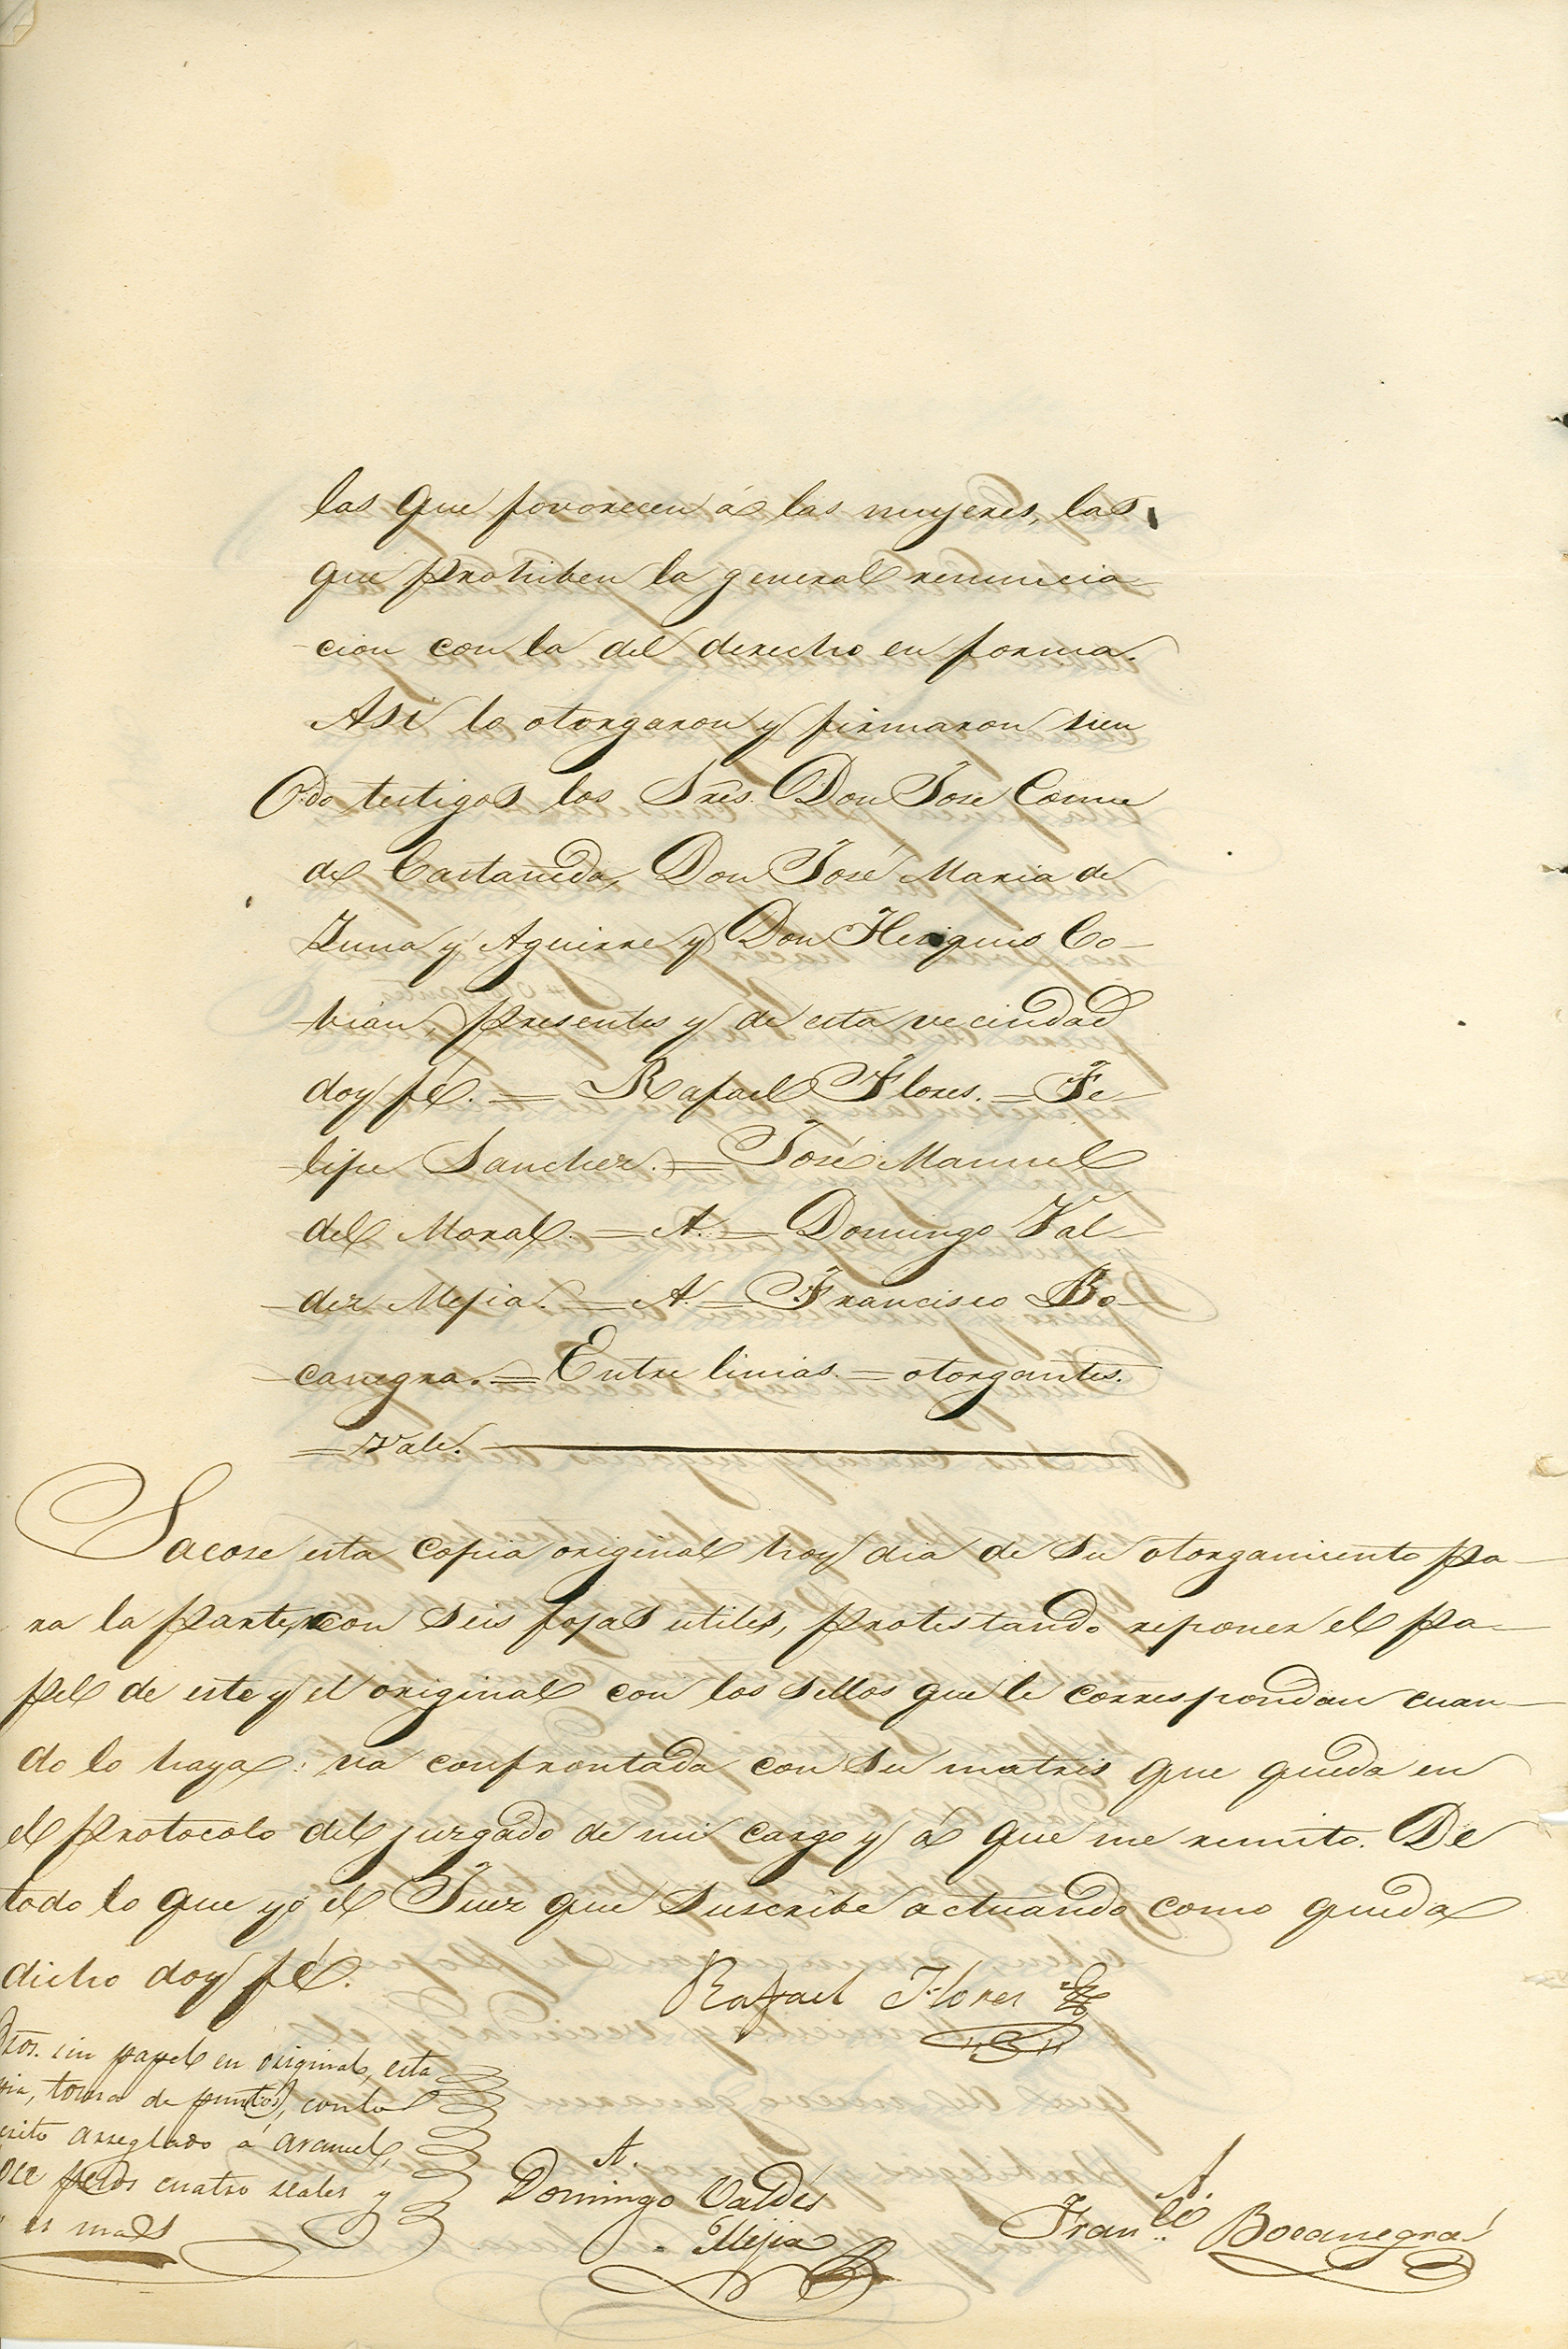 las que favorecen á las mujeres, las
que prohiben la general renuncia
cion con la del derecho en forma.
Asi lo otorgaron y firmaron sien
do testigos los Sres. Don Jose Come
de Castañeda, Don José Maria de
y Aguirre y Don Co-
bian, presentes y de esta vecindad
doy fé. = Rafael Flores. = Fe-
lipe Sanchez. = José Manuel
del Moral. = A. = Domingo Val-
dez Mejia. = A. = Francisco Bo-
canegra. = Entre linias. = otorgantes.
= Vale.
Sacose esta copia original hoy dia de su otorgamiento pa-
ra la parte, con seis fojas utiles, protestando reponer el pa-
pel de este y el original con los sellos que le correspondan cuan-
do lo haya: va confrontada con su matris que queda en
el protocolo del juzgado de mi cargo y á que me remito. De
todo lo que yo el Juez que suscribe actuando como queda
dicho doy fé.
Rafael Flores
sin papel en original, esta
toma de puntos, con lo
arreglado á arancel,
pesos cuatro reales y
es mas
A.
Domingo Valdés
Mejia
A.
Fran.co Bocanegra